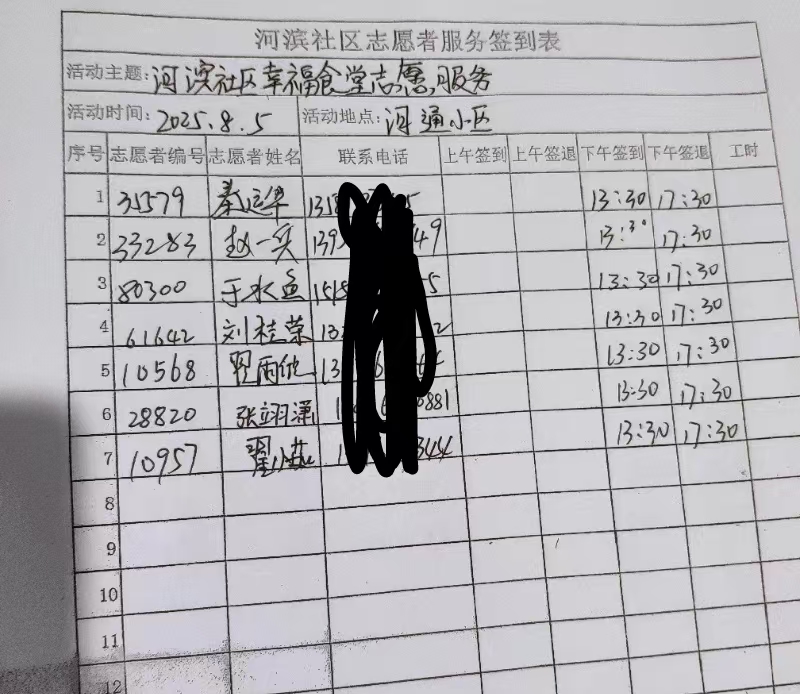 河滨社区志愿者服务签到表
活动主题: 河滨社区幸福食堂志愿服务
活动时间: 2025.8.5 活动地点: 河通小区
序号 志愿者编号 志愿者姓名 联系电话 上午签到 上午签退 下午签到 下午签退 工时
1 31579 秦运华 13:30 17:30
2 33283 赵一兵 139 49 13:30 17:30
3 80300 于水鱼 5 13:30 17:30
4 61642 刘桂荣 13 2 13:30 17:30
5 10568 13 13:30 17:30
6 28820 张翊潇 881 13:30 17:30
7 10957 344 13:30 17:30
8
9
10
11
12